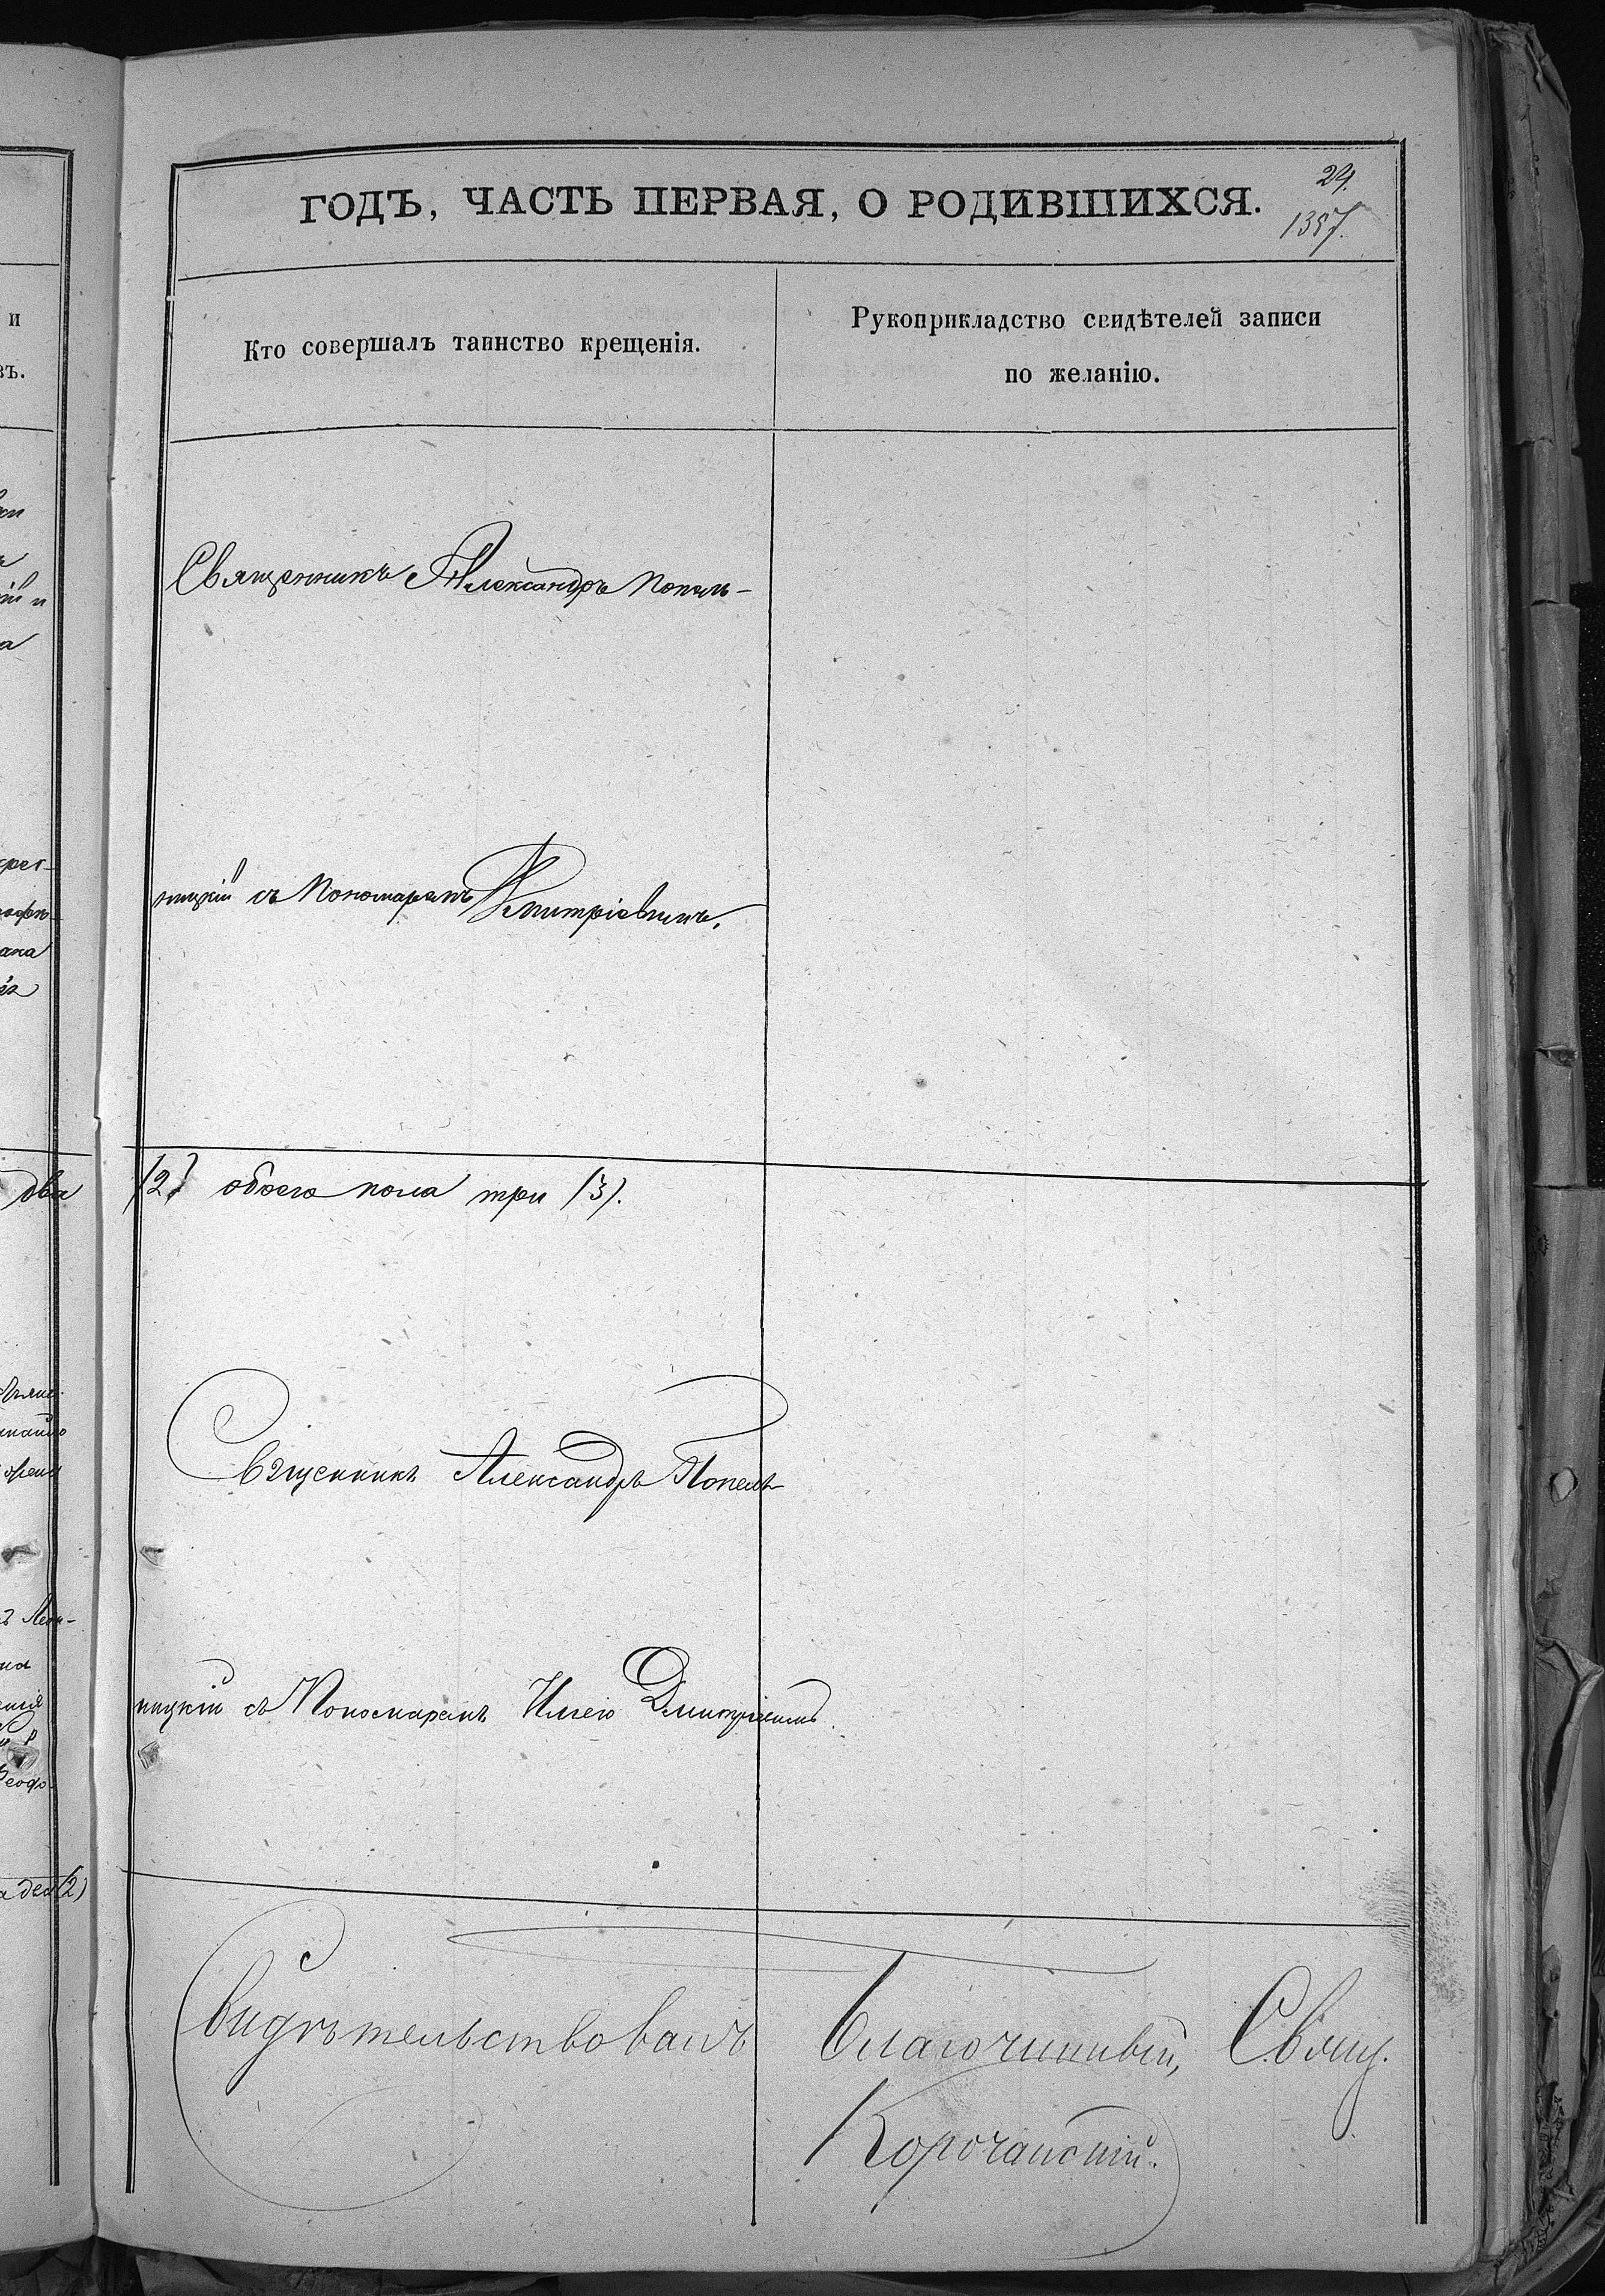 ГОДЪ, ЧАСТЬ ПЕРВАЯ, О РОДИВШИХСЯ.
29.
1357.
Кто совершалъ таинство крещенія.
Рукоприкладство свидѣтелей записи
по желанію.
Священникъ Александръ Попель-
ницкій съ Пономаремъ Дмитріевымъ.
два (2) обоего пола три (3).
Священникъ Александръ Попель-
ницкій съ Пономаремъ Ильею Дмитріевымъ.
Свидѣтельствовалъ Благочинный, Свящ.
Корочанскій.